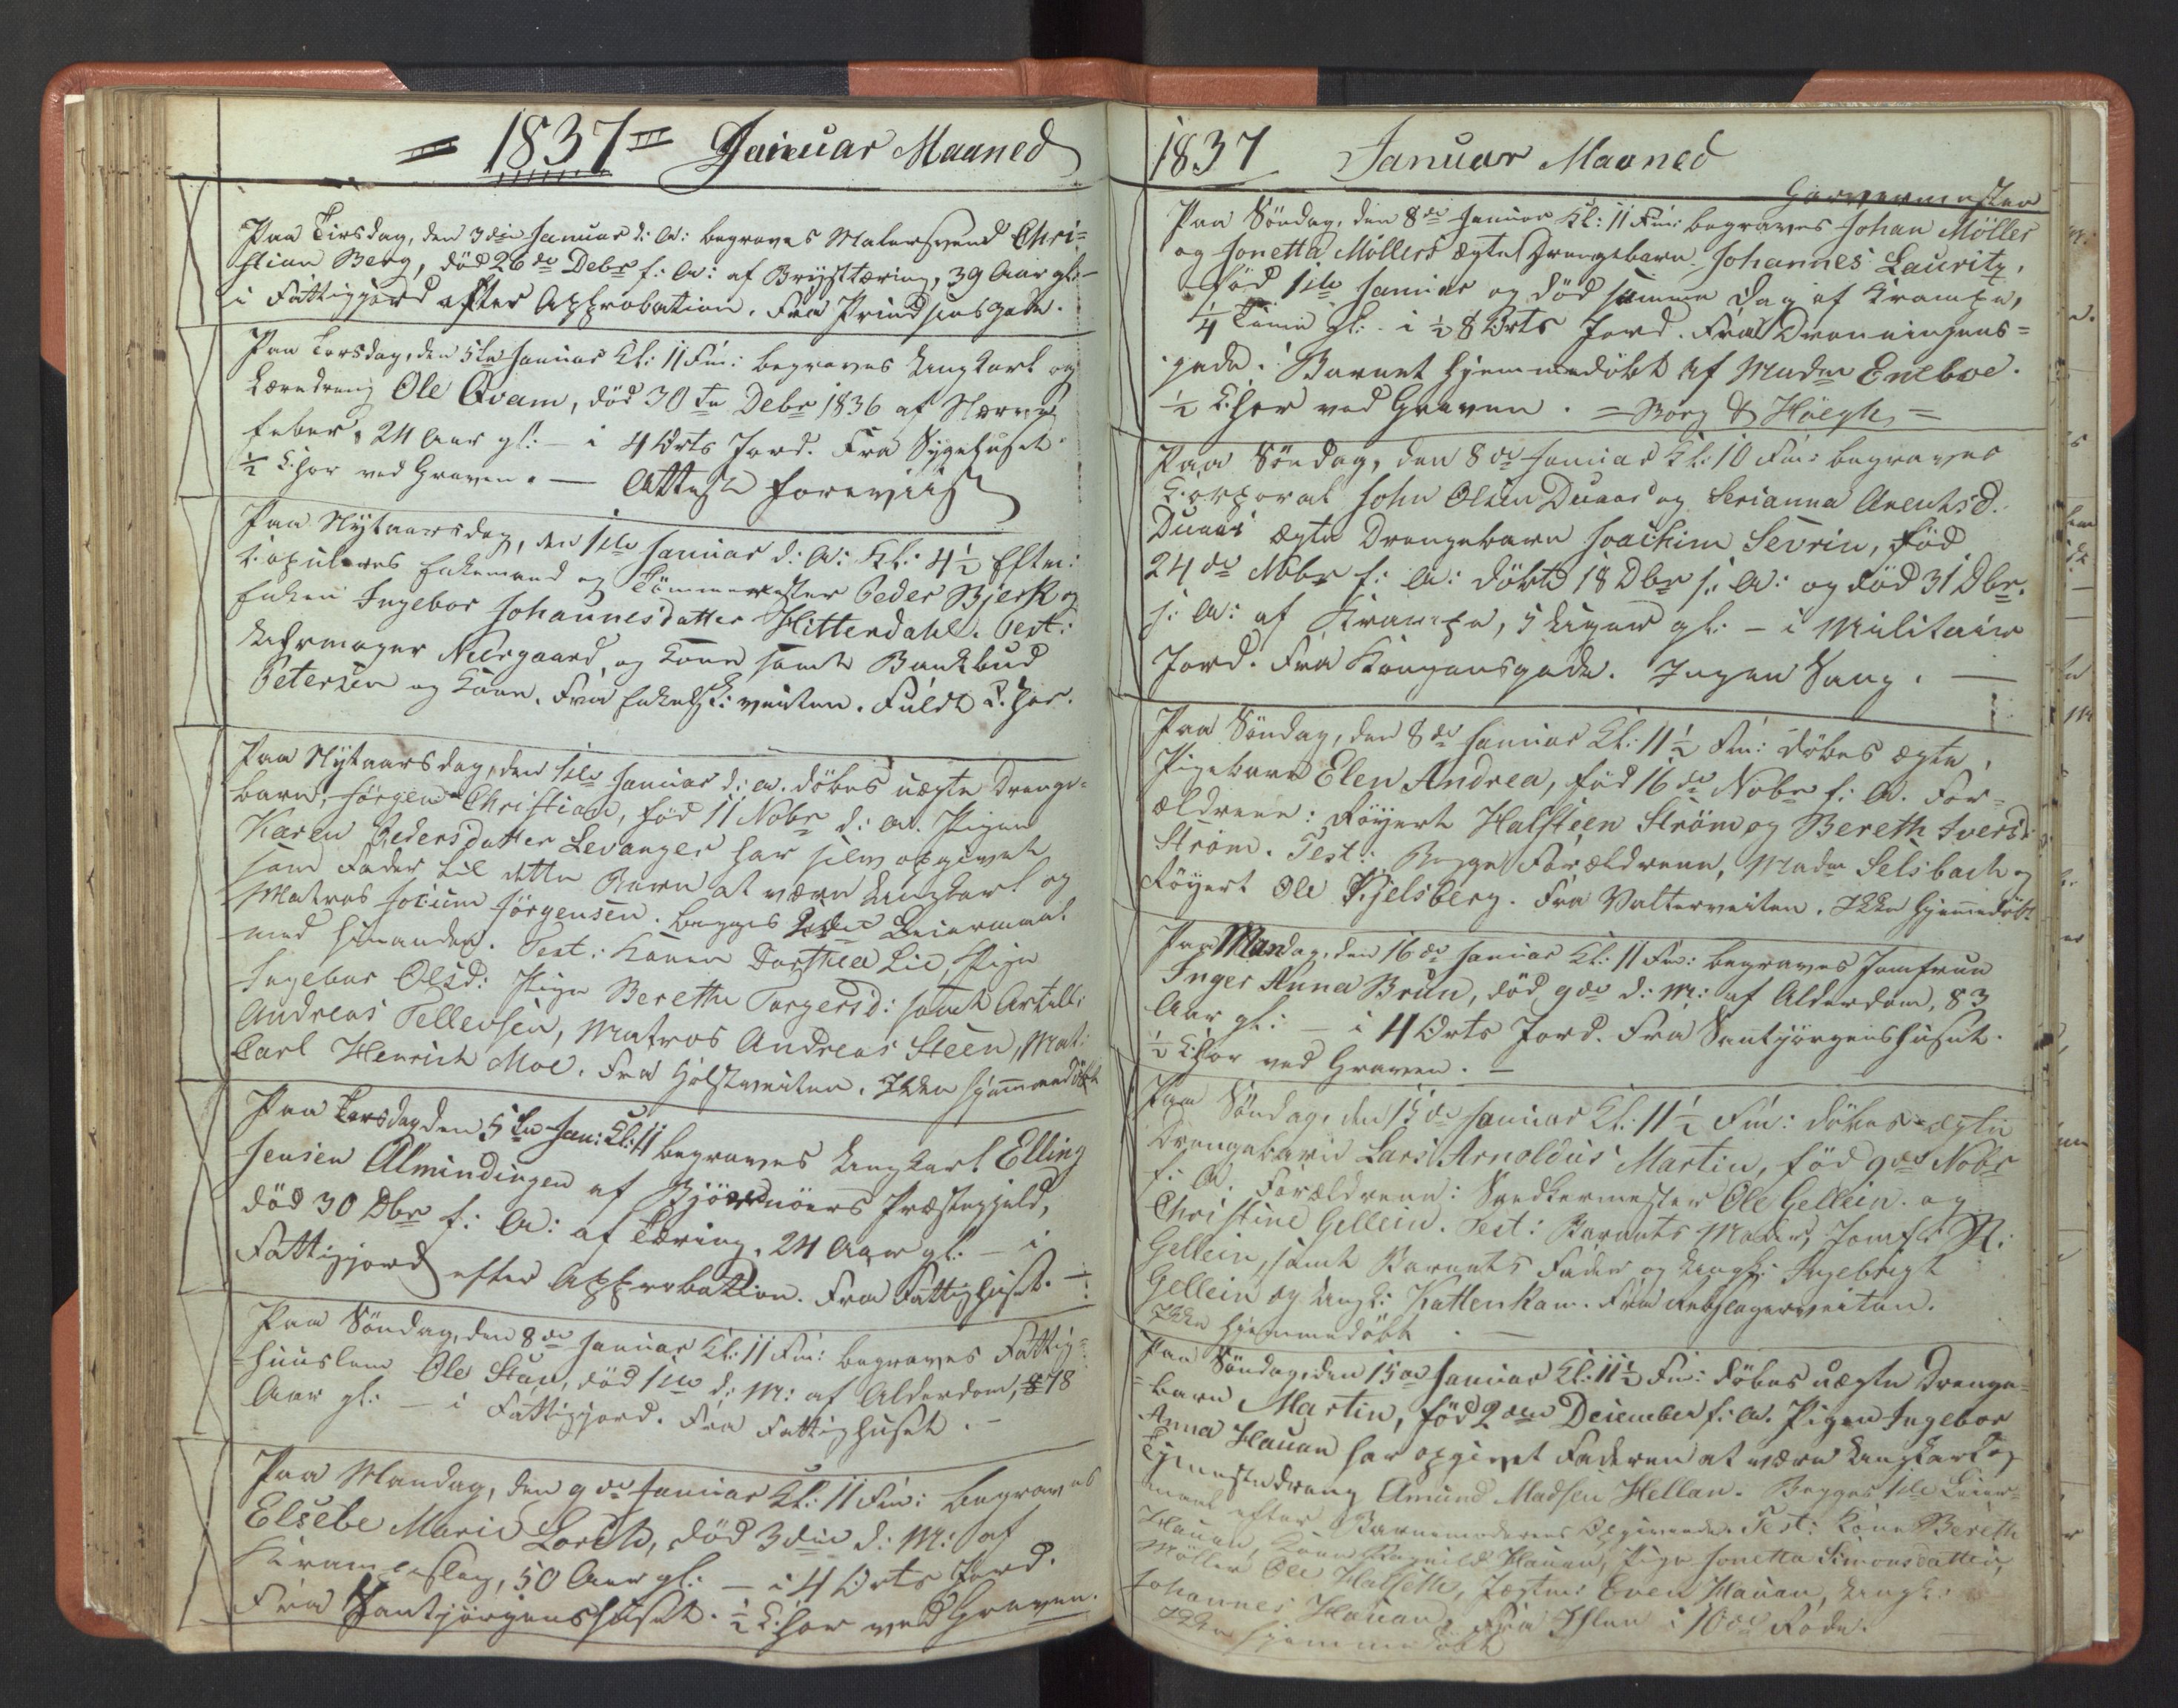 = 1837 = Januar Maaned
Paa Tirsdag, den 3die Januar d: A: begraves Malersvend Chri-
stian Berg, død 26de Debr f: A: af Brystteering, 39 Aar gl:
i Fattigjord efter Approbation. Fra Prindsensgade.
Paa Torsdag, den 5te Januar Kl: 11 Fm: begraves Ungkarl og
Læredreng Ole Qvam, død 30te Debr 1836 af Nerve
feber, 24 Aar gl: - i 4 Orts Jord. Fra Sygehuset
½ Chor ved Graven. — Attest foreviist
Paa Nytaarsdag, den 1ste Januar d: A: Kl: 4½ Efterm:
Copuleres Enkemand og Tømmermester Peder Bjerk og
Enken Ingebor Johannesdatter Hitterdahl. Test:
Uhrmager Neergaard, og Kone samt Bankbud
Petersen og Kone. Fra veiten. Fuldt Chor.
Paa Nytaarsdag, den 1ste Januar d: A. døbes uægte Drenge-
barn, Jørgen Christian, fød 11 Nobr d: A. Pigen
Karen Pedersdatter Levanger har selv opgivet
som Fader til dette Barn at være Ungkarl og
Matros Jocum Jørgensen. begges Leiermaal
med hinanden. Test: Konen Dorthea Lie, Pige
Ingebor Olsd: Pige Berethe Torgersd: samt Artill:
Andreas Tellevsen, Matros Andreas Steen, Mat:
Carl Henrich Moe. Fra Hjolstveiten. Ikke hjemmedøbt
Paa Torsdag den 5te Jan: Kl: 11 begraves Ungkarl Elling
Jensen Almindingen af Bjørnøers Præstegjeld,
død 30 Dbr f: A: af Tæring, 24 Aar gl: - i
Fattigjord efter Approbation. Fra Fattighuset. —
Paa Søndag, den 8de Januar Kl: 11 Fm: begraves Fattig-
huuslem Ole Stav, død 1ste d: M: af Alderdom, 78
Aar gl: - i Fattigjord. Fra Fattighuset. -
Paa Mandag, den 9de Januar Kl: 11 Fm: begraves
Elsebe Marie Lorch, død 3die d: M: af
Krampeslag, 50 Aar gl: - i 4 Orts Jord.
Fra Santjørgenshuset. ½ Chor ved Graven.
1837 Januar Maaned
Garvermester
Paa Søndag, den 8de Januar Kl: 11 Fm: begraves Johan Möller
og Jonetta Möllers ægte Drengebarn Johannes Lauritz,
fød 1ste Januar og død samme Dag af Krampe,
¼ Time gl: - i ½ 8 Orts Jord. Fra Dronningens-
gade. Barnet hjemmedöbt af Madm Eneboe.
½ Chor ved Graven. = Borg & Höegh =
Paa Søndag, den 8de Januar Kl: 10 Fm: begraves
Corporal John Olsen Duaas og Serianna Arentsd.
Duaas ægte Drengebarn Joachim Sevrin, fød
24de Nobr f: A: döbt 18 Dbr f: A: og död 31 Dbr.
f: A: af Krampe, 5 Uger gl: - i Militair
Jord. Fra Kongensgade. Ingen Sang. —
Paa Søndag, den 8de Januar Kl: 11½ Fm: döbes ægte
Pigebarn Elen Andrea, fød 16de Nobr f: A. For-
ældrene: Føyert Halsteen Ström og Bereth Iversd:
Ström. Test: Begge Forældrene, Madm Selsbach og
Føyert Ole Kjelsberg. Fra Vatterveiten. Ikke hjemmedöbt
Paa Mandag, den 16de Januar Kl: 11 Fm: begraves Jomfrue
Inger Anna Brun, død 9de d: M: af Alderdom, 83
Aar gl: - i 4 Orts Jord. Fra Santjörgenshuset.
½ Chor ved Graven. —
Paa Søndag, den 15de Januar Kl: 11½ Fm: döbes ægte
Drengebarn Lars Arnoldus Martin, fød 9de Nobr
f: A. Forældrene: Snedkermester Ole Gellein og
Christine Gellein. Test: Barnets Moder, Jomfr: N:
Gellein, samt Barnets Fader og Ungk: Ingebrigt
Gellein og Ungk: Kattenkam. Fra Rebslagerveiten.
Ikke hjemmedöbt. —
Paa Søndag, den 15de Januar Kl: 11½ Fm: döbes uægte Drenge-
barn Martin, fød 2den December f: A. Pigen Ingebor
Anna Hauan har opgivet Faderen at være Ungkarl og
Tjenestedreng Amund Madsen Hellan. Begges 1ste Leier-
maal efter Barnemoderens Opgivende. Test: Kone Bereth
Hauan, Kone Ragnild Hauan, Pige Jonetta Simonsdatter,
Möller Ole Halseth, Jægtm: Even Hauan, Ungk:
Johannes Hauan. Fra Ihlen i 10de Rode.
Ikke hjemmedöbt